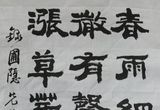 春雨細
微有聲
漲草芽
錄圃隱先